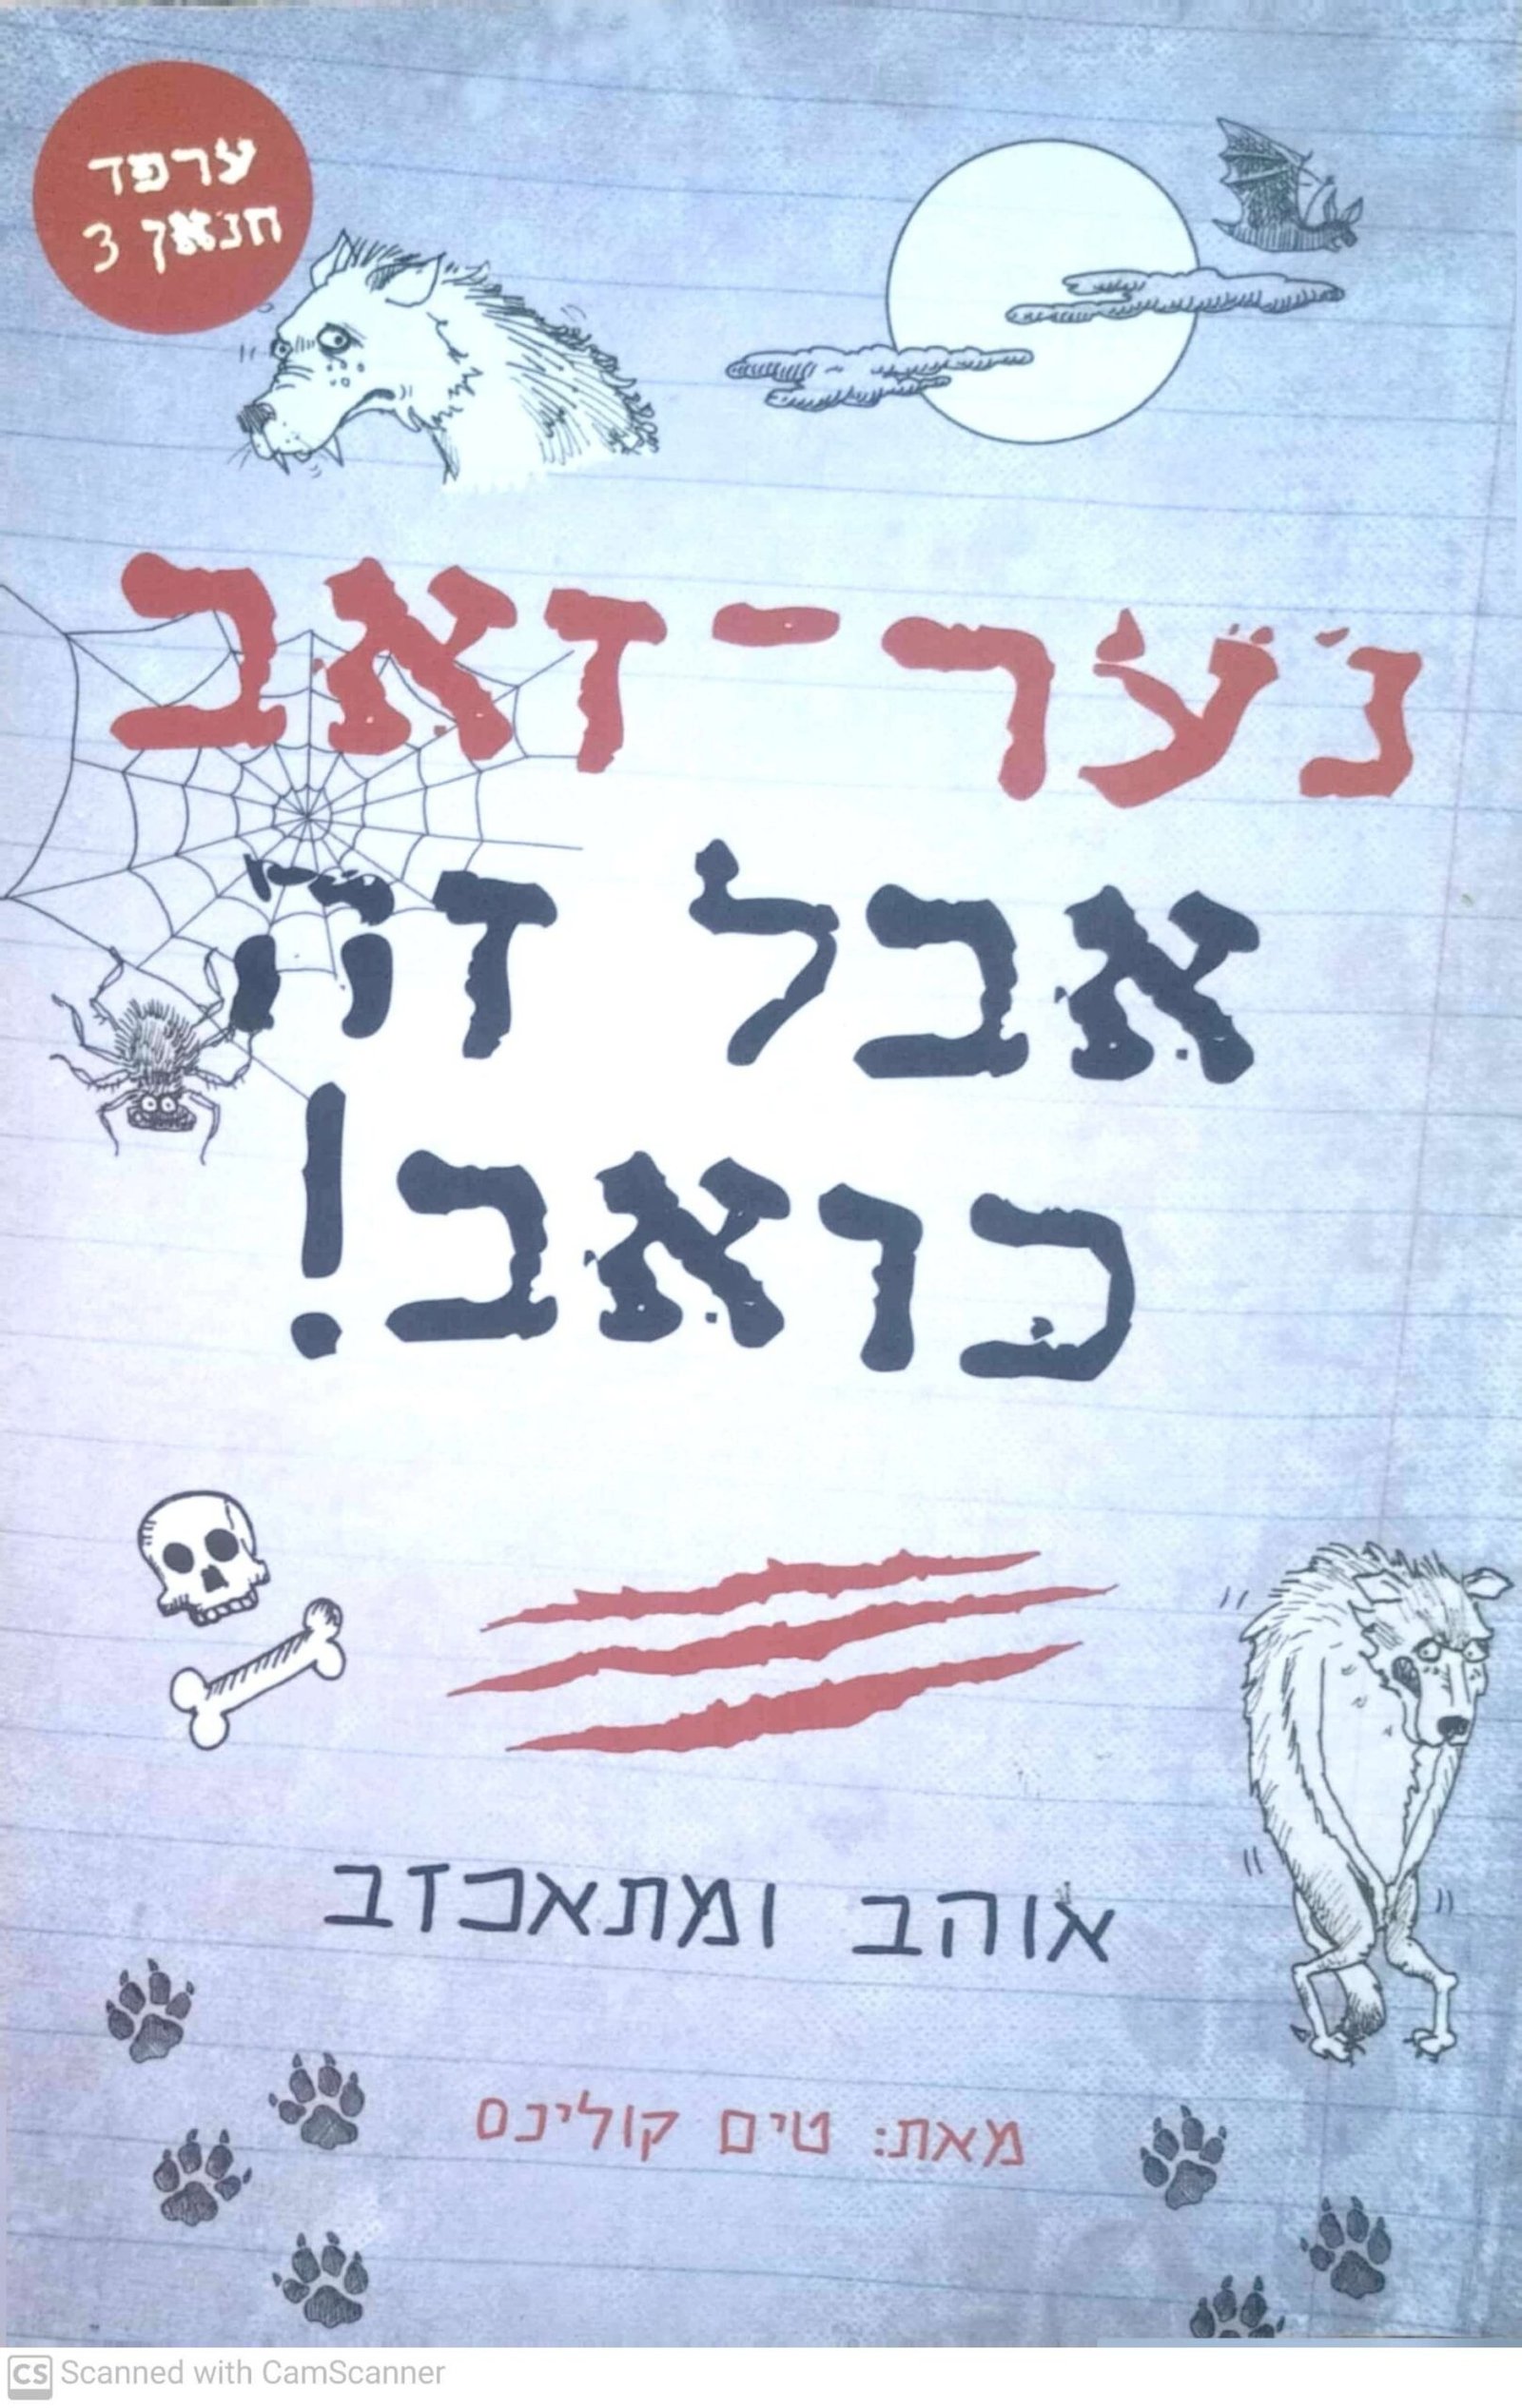 ערפד
חנאן 3
נער-זאב
אבל זה
כואב!
אוהב ומתאכזב
מאת: טים קולינס
CS Scanned with CamScanner